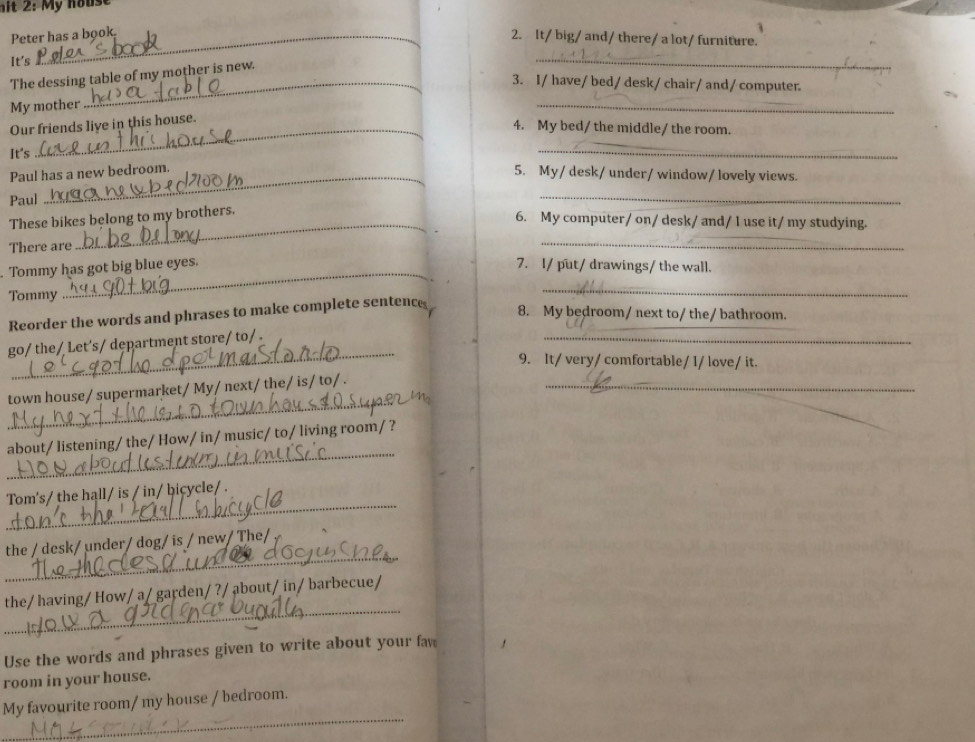 nit 2: My house
Peter has a book.
It's Peter's book
The dessing table of my mother is new.
My mother has a table
Our friends live in this house.
It's live in this house
Paul has a new bedroom.
Paul has a new bedroom
These bikes belong to my brothers.
There are
. Tommy has got big blue eyes.
Tommy has got big
Reorder the words and phrases to make complete sentences
go/ the/ Let's/ department store/ to/ .
town house/ supermarket/ My/ next/ the/ is/ to/ .
My next the is to town hous to superm
about/ listening/ the/ How/ in/ music/ to/ living room/ ?
How about listening in music
Tom's/ the hall/ is / in/ bicycle/ .
the / desk/ under/ dog/ is / new/ The/ .
the/ having/ How/ a/ garden/ ?/ about/ in/ barbecue/
How a
Use the words and phrases given to write about your favo
room in your house.
My favourite room/ my house / bedroom.
My
2. It/ big/ and/ there/ a lot/ furniture.
3. I/ have/ bed/ desk/ chair/ and/ computer.
4. My bed/ the middle/ the room.
5. My/ desk/ under/ window/ lovely views.
6. My computer/ on/ desk/ and/ I use it/ my studying.
7. I/ put/ drawings/ the wall.
8. My bedroom/ next to/ the/ bathroom.
9. It/ very/ comfortable/ I/ love/ it.